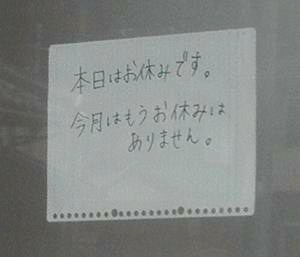 本日はお休みです。
今月はもうお休みは
ありません。